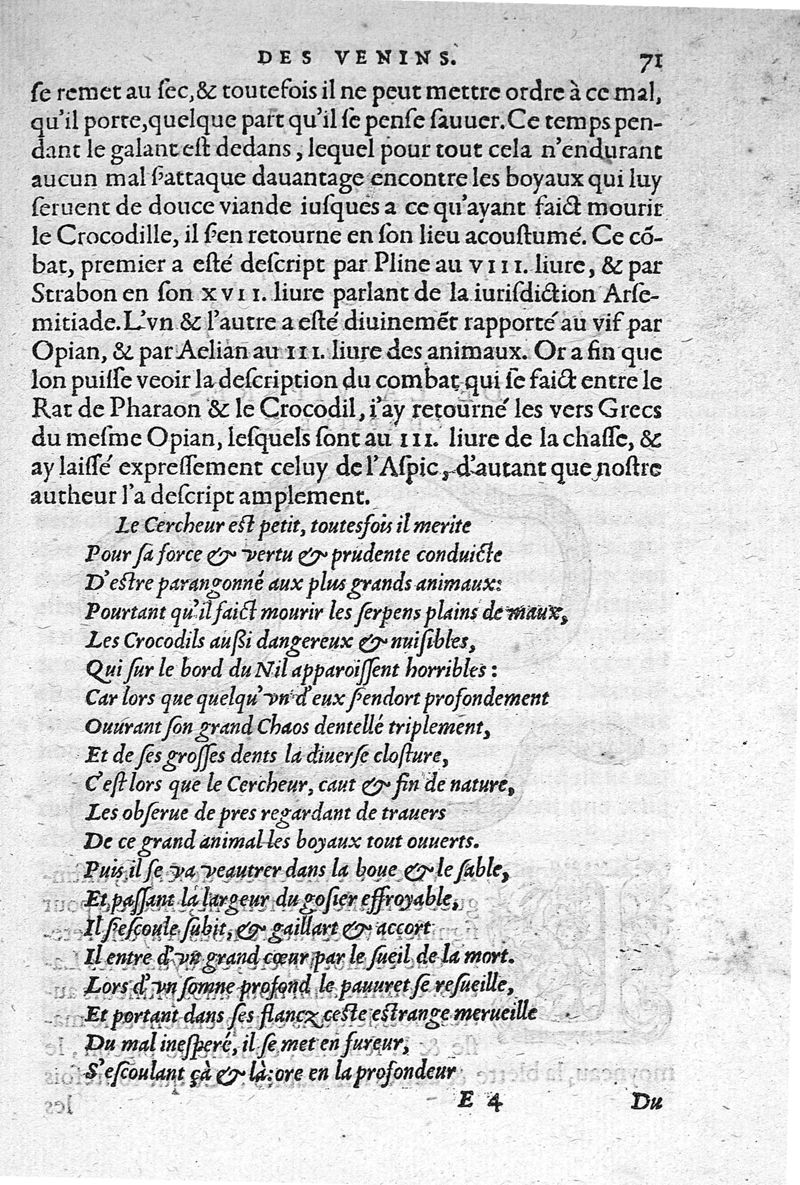 DES VENINS. 71
ſe remet au ſec,& toutefois il ne peut mettre ordre à ce mal,
qu'il porte,quelque part qu'il ſe penſe ſauuer.Ce temps pen-
dant le galant eſt dedans, lequel pour tout cela n'endurant
aucun mal ſ'attaque dauantage encontre les boyaux qui luy
ſeruent de douce viande iuſques a ce qu'ayant faict mourir
le Crocodille, il ſ'en retourne en ſon lieu acouſtumé. Ce cõ-
bat, premier a eſté deſcript par Pline au VIII. liure, & par
Strabon en ſon XVII. liure parlant de la iuriſdiction Arſe-
mitiade.L'vn & l'autre a eſté diuinemẽt rapporté au vif par
Opian, & par Aelian au III. liure des animaux. Or a fin que
lon puiſſe veoir la deſcription du combat qui ſe faict entre le
Rat de Pharaon & le Crocodil, i'ay retourné les vers Grecs
du meſme Opian, leſquels ſont au III. liure de la chaſſe, &
ay laiſſé expreſſement celuy de l'Aſpic, d'autant que noſtre
autheur l'a deſcript amplement.
Le Cercheur eſt petit, toutesfois il merite
Pour ſa force & vertu & prudente conduicte
D'eſtre parangonné aux plus grands animaux:
Pourtant qu'il faict mourir les ſerpens plains de maux,
Les Crocodils außi dangereux & nuiſibles,
Qui ſur le bord du Nil apparoiſſent horribles :
Car lors que quelqu'vn d'eux ſ'endort profondement
Ouurant ſon grand Chaos dentellé triplement,
Et de ſes groſſes dents la diuerſe cloſture,
C'eſt lors que le Cercheur, caut & fin de nature,
Les obſerue de pres regardant de trauers
De ce grand animal les boyaux tout ouuerts.
Puis il ſe va veautrer dans la boue & le ſable,
Et paſſant la largeur du goſier effroyable,
Il ſ'eſcoule ſubit, & gaillart & accort
Il entre d'vn grand cœur par le ſueil de la mort.
Lors d'vn ſomne profond le pauuret ſe reſueille,
Et portant dans ſes flancz ceſte eſtrange merueille
Du mal ineſperé, il ſe met en fureur,
S'eſcoulant çà & là: ore en la profondeur
E 4 Du